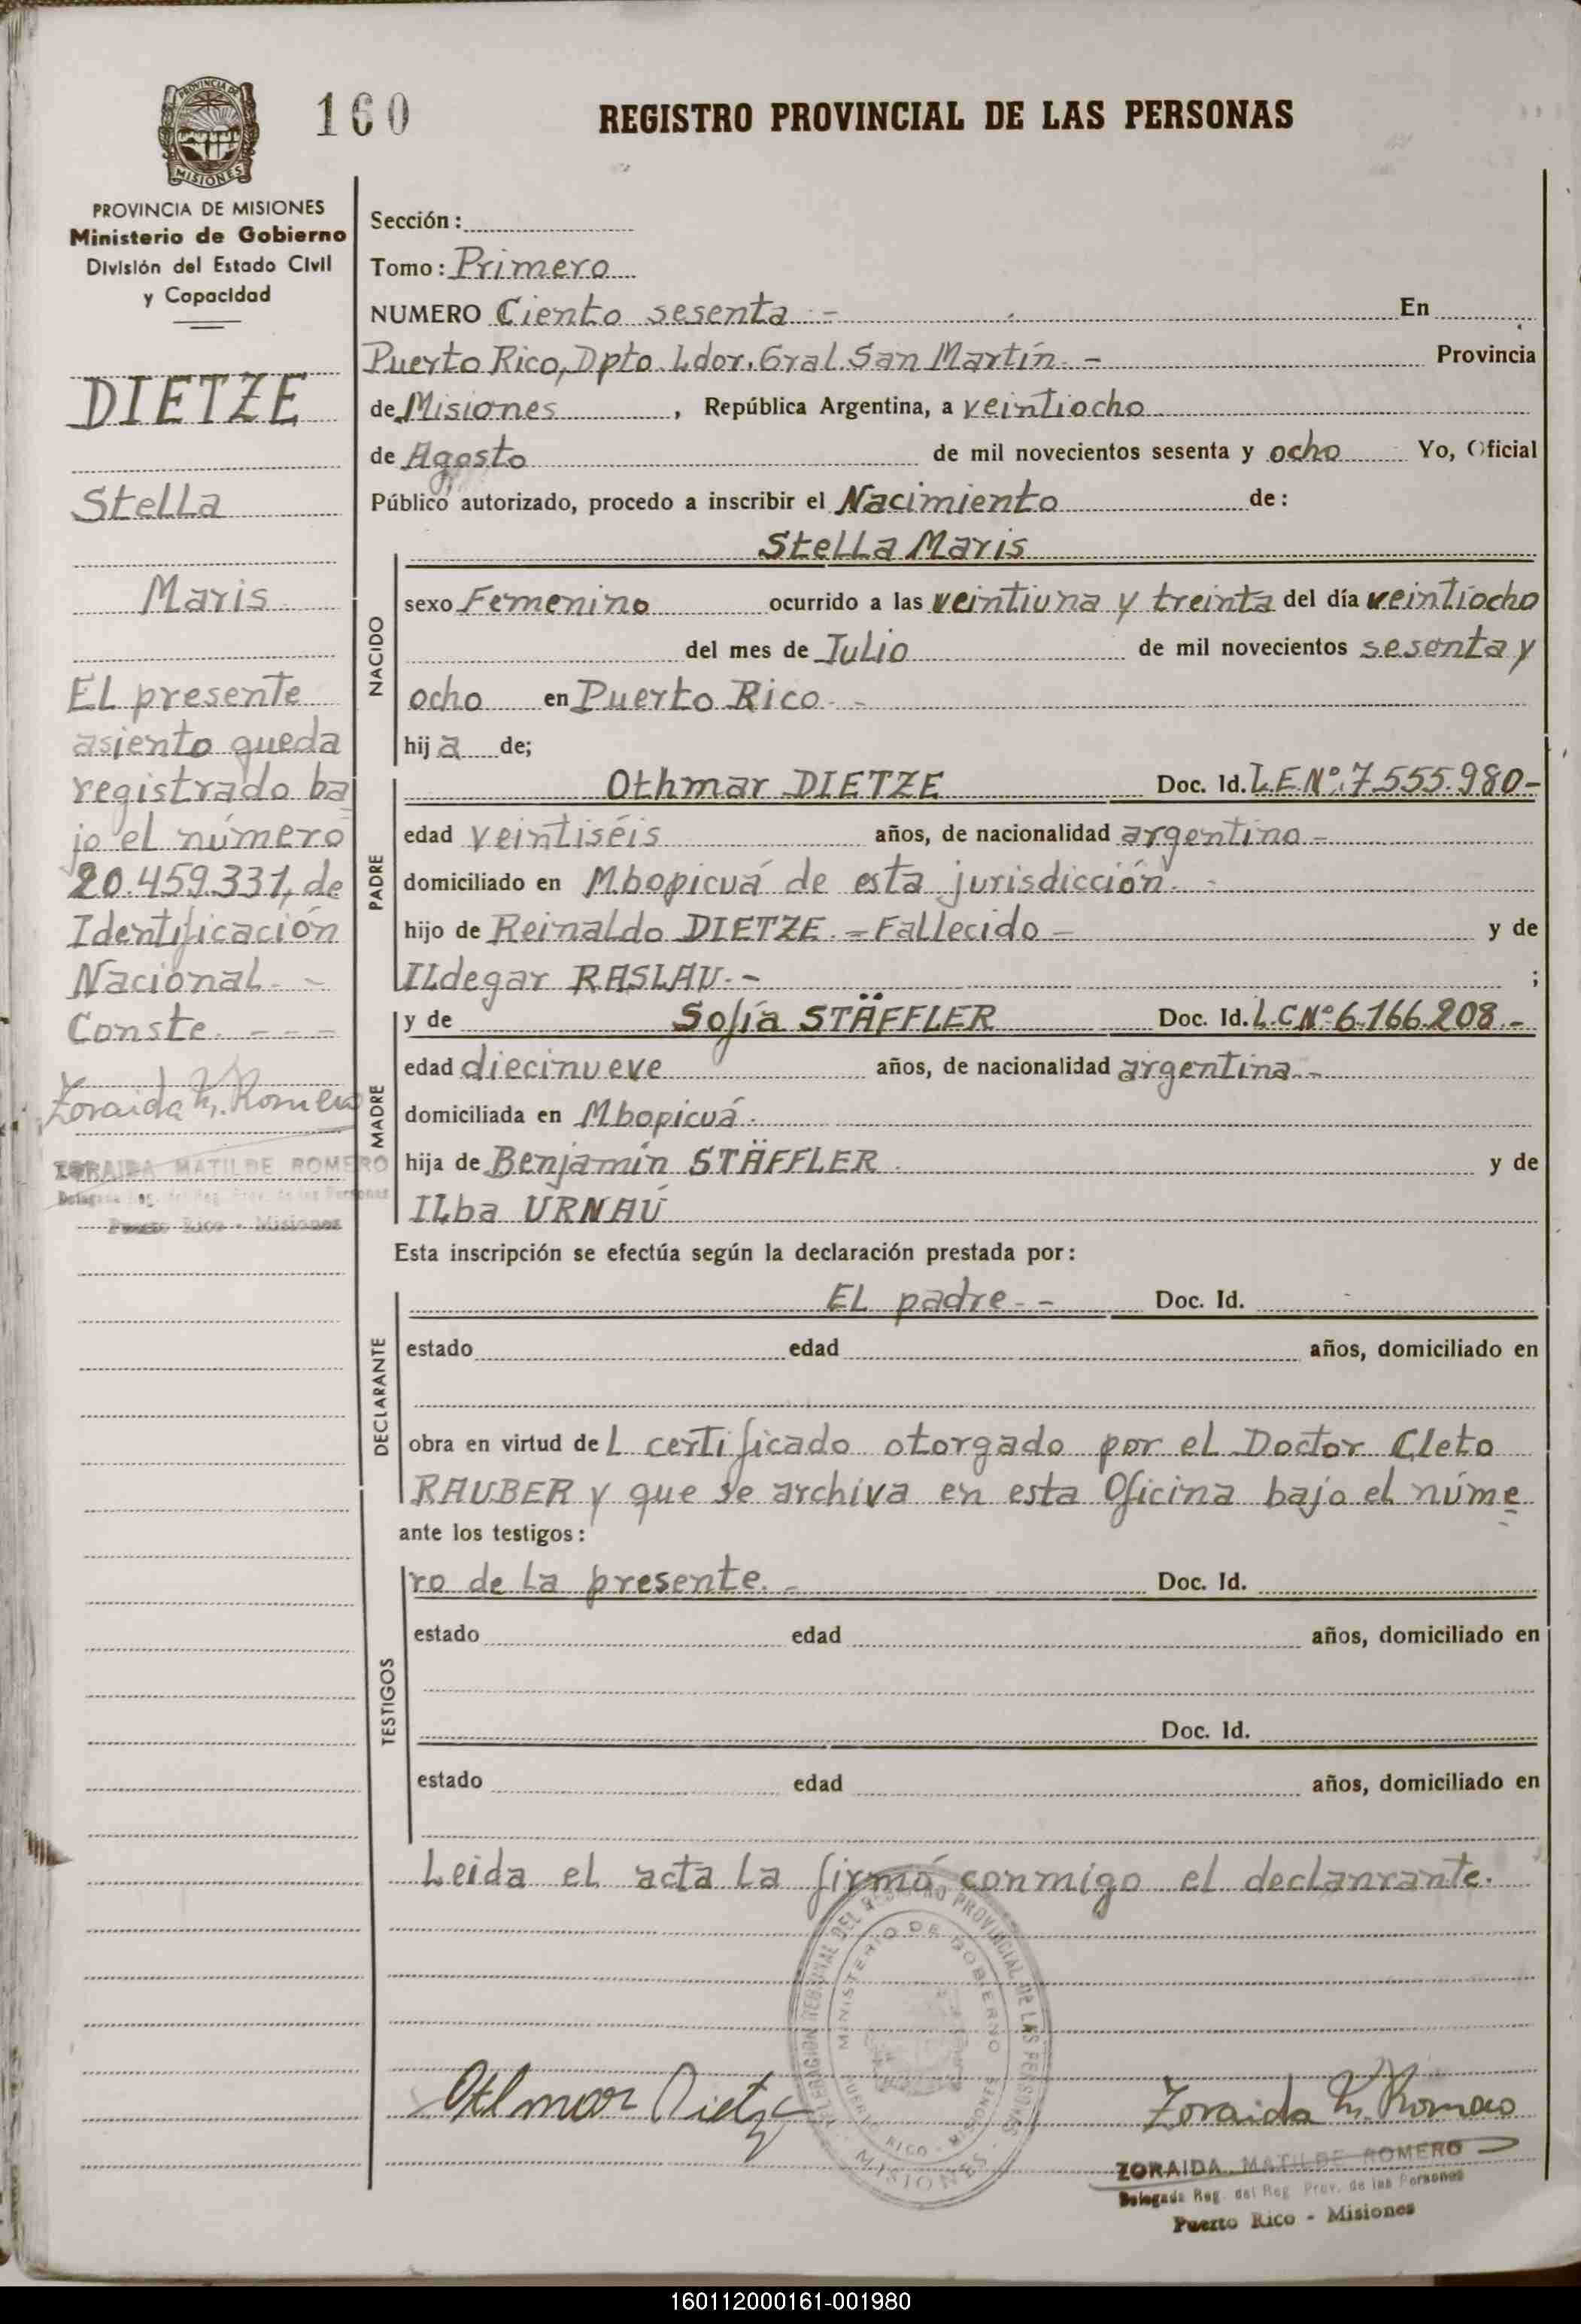 PROVINCIA DE
MISIONES
160
REGISTRO PROVINCIAL DE LAS PERSONAS
PROVINCIA DE MISIONES
Ministerio de Gobierno
División del Estado Civil
y Capacidad
DIETZE
Stella
Maris
El presente
asiento queda
registrado ba
jo el número
20.459.331, de
Identificación
Nacional. -
Conste. - - -
Zoraida M. Romero
ZORAIDA MATILDE ROMERO
Delegada Reg. del Reg. Prov. de las Personas
Puerto Rico - Misiones
Sección:
Tomo: Primero
NUMERO Ciento sesenta. - En
Puerto Rico, Dpto. Ldor. Gral. San Martín. - Provincia
de Misiones, República Argentina, a veintiocho
de Agosto de mil novecientos sesenta y ocho Yo, Oficial
Público autorizado, procedo a inscribir el Nacimiento de:
NACIDO
Stella Maris
sexo Femenino ocurrido a las veintiuna y treinta del día veintiocho
del mes de Julio de mil novecientos sesenta y
ocho en Puerto Rico. -
hija de;
PADRE
Othmar DIETZE Doc. Id. L.E.Nº. 7.555.980-
edad veintiséis años, de nacionalidad argentino -
domiciliado en Mbopicuá de esta jurisdicción. -
hijo de Reinaldo DIETZE. = Fallecido - y de
Ildegar RASLAU. - ;
MADRE
y de Sofía STÄFFLER Doc. Id. L.C.Nº 6.166.208. -
edad diecinueve años, de nacionalidad argentina. -
domiciliada en Mbopicuá.
hija de Benjamín STÄFFLER. y de
Ilba URNAU
Esta inscripción se efectúa según la declaración prestada por:
DECLARANTE
El padre. - Doc. Id.
estado edad años, domiciliado en
obra en virtud del certificado otorgado por el Doctor Cleto
RAUBER y que se archiva en esta Oficina bajo el núme
ante los testigos:
TESTIGOS
ro de la presente. - Doc. Id.
estado edad años, domiciliado en
Doc. Id.
estado edad años, domiciliado en
Leida el acta la firmó conmigo el declanrante.
DELEGACION REGIONAL DEL REGISTRO PROVINCIAL DE LAS PERSONAS
MINISTERIO DE GOBIERNO
PUERTO RICO - MISIONES
MISIONES
Otlmar Dietze
Zoraida M. Romero
ZORAIDA MATILDE ROMERO
Delegada Reg. del Reg. Prov. de las Personas
Puerto Rico - Misiones
160112000161-001980